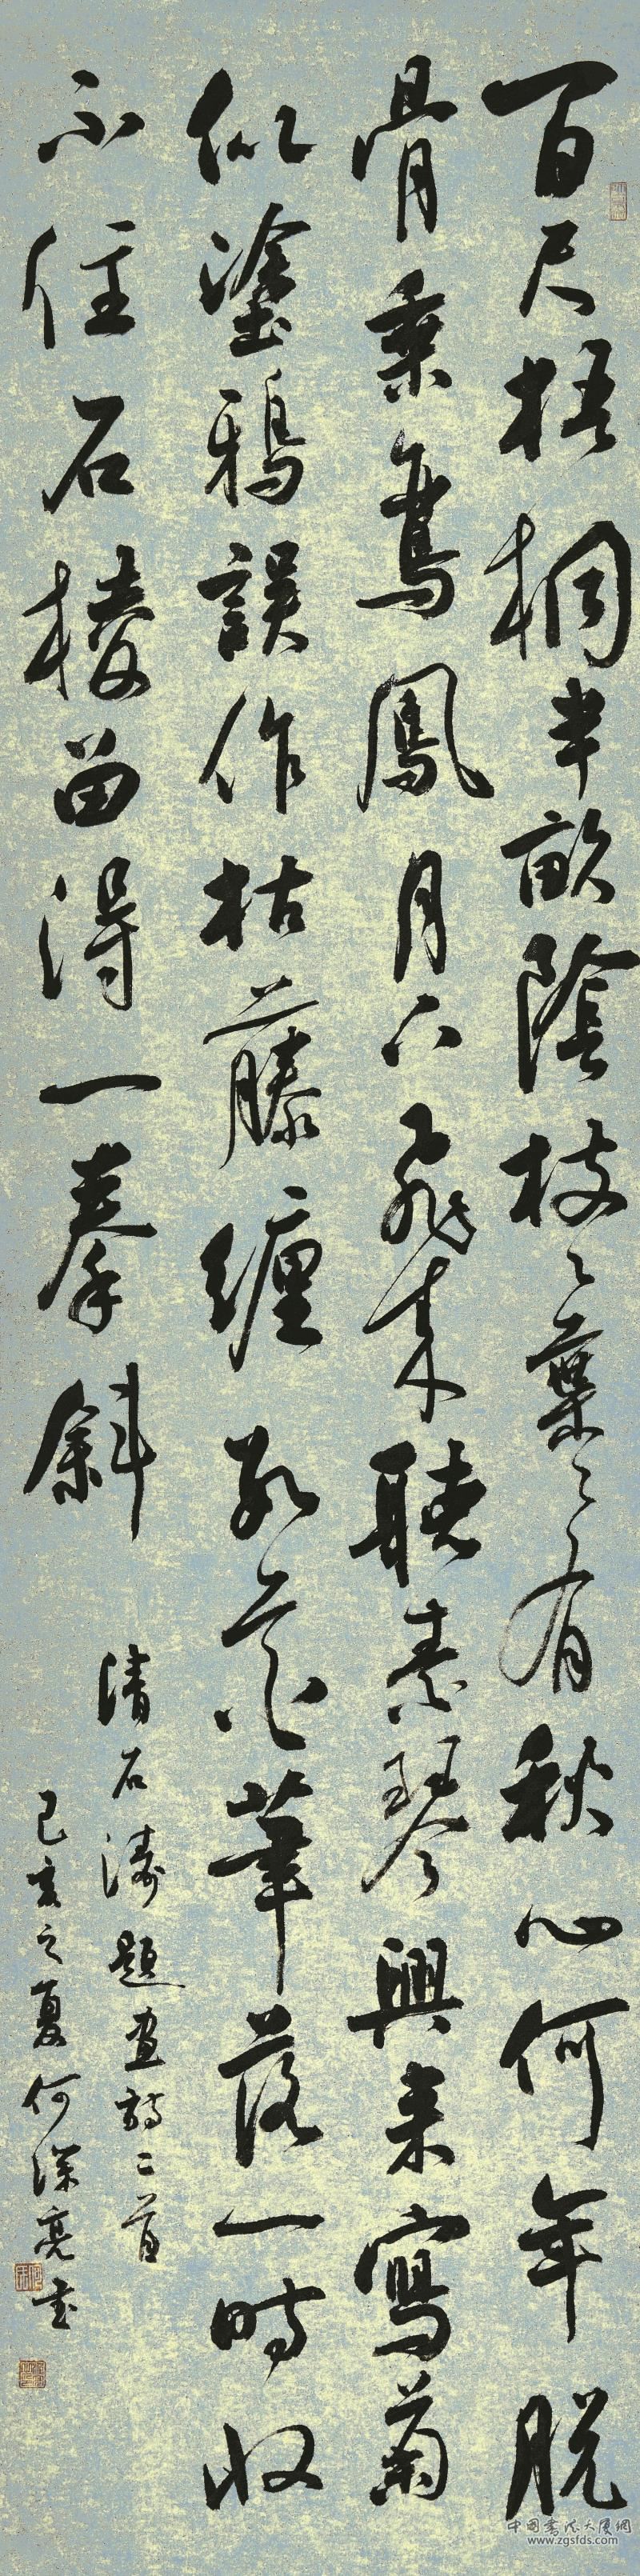 百尺梧桐半畝陰枝々葉々有秋心何年脱
骨乘鸞鳳月下飛来聽素琴興来寫菊
似塗鴉誤作枯藤纏數花筆落一時收
不住石棱留得一拳斜
清石濤題畫詩二首
己亥之夏何深亮書
中國書法大厦網
www.zgsfds.com